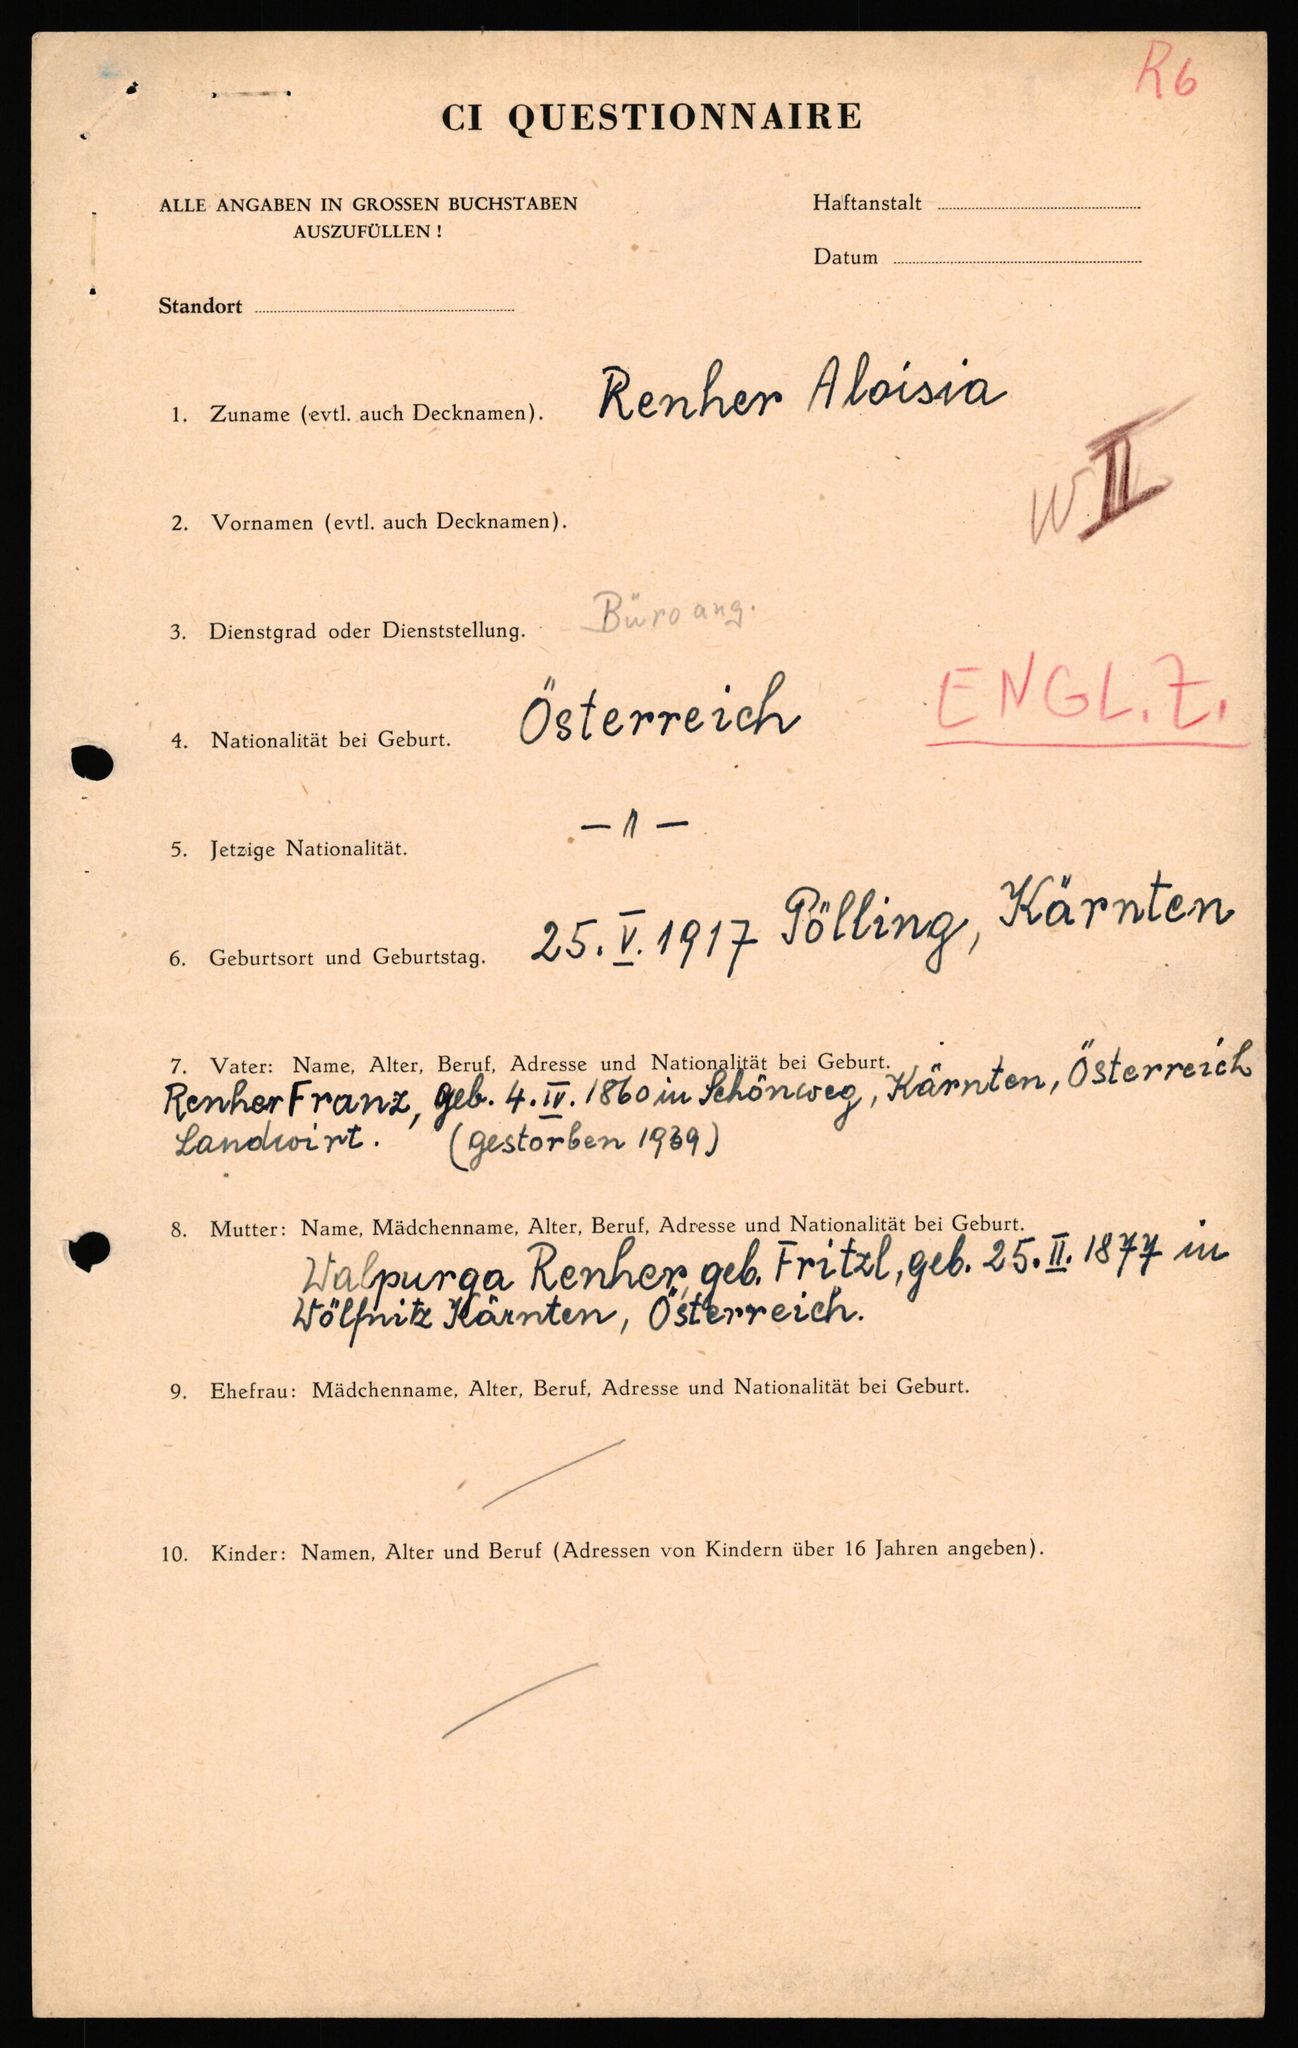 R6
CI QUESTIONNAIRE
ALLE ANGABEN IN GROSSEN BUCHSTABEN
AUSZUFÜLLEN !
Haftanstalt
Datum
Standort
1. Zuname (evtl. auch Decknamen). Renher Aloisia
W II
2. Vornamen (evtl. auch Decknamen).
3. Dienstgrad oder Dienststellung. Büroang.
ENGL. Z.
4. Nationalität bei Geburt. Österreich
5. Jetzige Nationalität. — 11 —
6. Geburtsort und Geburtstag. 25. V. 1917 Pölling, Kärnten
7. Vater: Name, Alter, Beruf, Adresse und Nationalität bei Geburt.
Renher Franz, geb. 4. IV. 1860 in Schönweg, Kärnten, Österreich
Landwirt. (gestorben 1939)
8. Mutter: Name, Mädchenname, Alter, Beruf, Adresse und Nationalität bei Geburt.
Walpurga Renher, geb. Fritzl, geb. 25. II. 1877 in
Wölfnitz Kärnten, Österreich.
9. Ehefrau: Mädchenname, Alter, Beruf, Adresse und Nationalität bei Geburt.
10. Kinder: Namen, Alter und Beruf (Adressen von Kindern über 16 Jahren angeben).